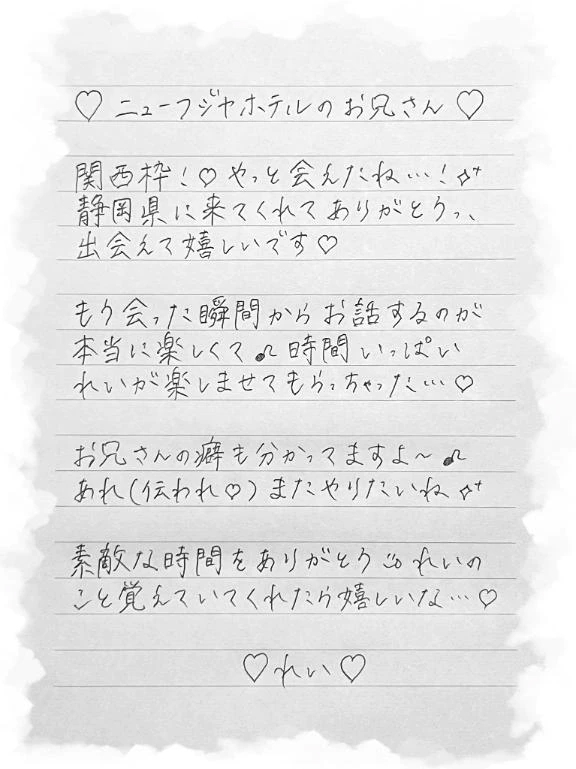 ♡ ニューフジヤホテルのお兄さん ♡
関西枠！♡ やっと会えたね…！✧⁺
静岡県に来てくれてありがとうっ、
出会えて嬉しいです♡
もう会った瞬間からお話するのが
本当に楽しくて♫ 時間いっぱい
れいが楽しませてもらっちゃった…♡
お兄さんの癖も分かってますよ〜♫
あれ(伝われ♡)またやりたいね✧⁺
素敵な時間をありがとう☺ れいの
こと覚えていてくれたら嬉しいな…♡
♡ れい ♡